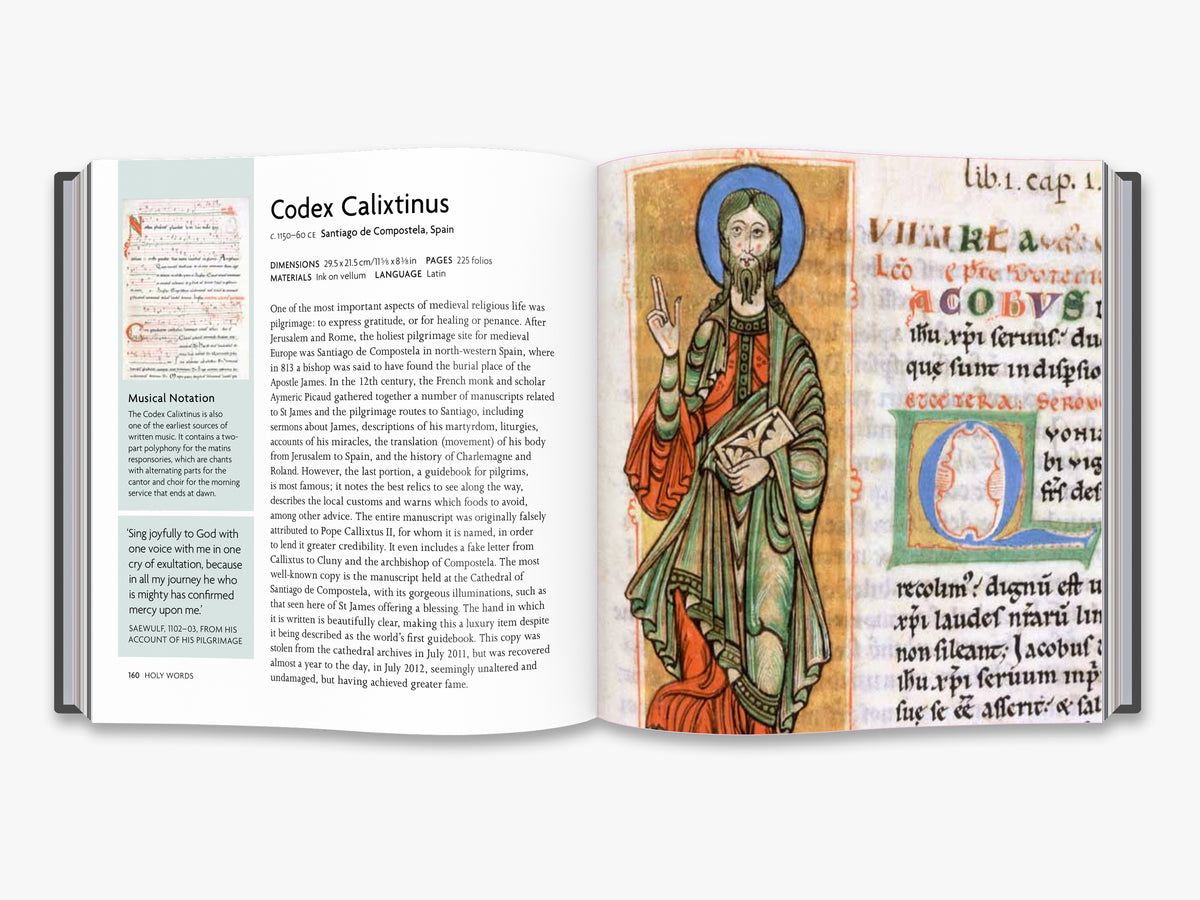 Codex Calixtinus
c. 1150–60 CE Santiago de Compostela, Spain
DIMENSIONS 29.5 x 21.5 cm/11⅝ x 8⅜ in PAGES 225 folios
MATERIALS Ink on vellum LANGUAGE Latin
One of the most important aspects of medieval religious life was
pilgrimage: to express gratitude, or for healing or penance. After
Jerusalem and Rome, the holiest pilgrimage site for medieval
Europe was Santiago de Compostela in north-western Spain, where
in 813 a bishop was said to have found the burial place of the
Apostle James. In the 12th century, the French monk and scholar
Aymeric Picaud gathered together a number of manuscripts related
to St James and the pilgrimage routes to Santiago, including
sermons about James, descriptions of his martyrdom, liturgies,
accounts of his miracles, the translation (movement) of his body
from Jerusalem to Spain, and the history of Charlemagne and
Roland. However, the last portion, a guidebook for pilgrims,
is most famous; it notes the best relics to see along the way,
describes the local customs and warns which foods to avoid,
among other advice. The entire manuscript was originally falsely
attributed to Pope Callixtus II, for whom it is named, in order
to lend it greater credibility. It even includes a fake letter from
Callixtus to Cluny and the archbishop of Compostela. The most
well-known copy is the manuscript held at the Cathedral of
Santiago de Compostela, with its gorgeous illuminations, such as
that seen here of St James offering a blessing. The hand in which
it is written is beautifully clear, making this a luxury item despite
it being described as the world's first guidebook. This copy was
stolen from the cathedral archives in July 2011, but was recovered
almost a year to the day, in July 2012, seemingly unaltered and
undamaged, but having achieved greater fame.
Musical Notation
The Codex Calixtinus is also
one of the earliest sources of
written music. It contains a two-
part polyphony for the matins
responsories, which are chants
with alternating parts for the
cantor and choir for the morning
service that ends at dawn.
'Sing joyfully to God with
one voice with me in one
cry of exultation, because
in all my journey he who
is mighty has confirmed
mercy upon me.'
SAEWULF, 1102–03, FROM HIS
ACCOUNT OF HIS PILGRIMAGE
160 HOLY WORDS
lib. 1. cap. 1.
ACOBUS
ihu xpi seruus
quę sunt in dispsio
Q
recolim? dignū est u
xpi laudes nr̄arū lin
non sileant; Jacobus
ihu xpi seruum
suę se asserit: & sal